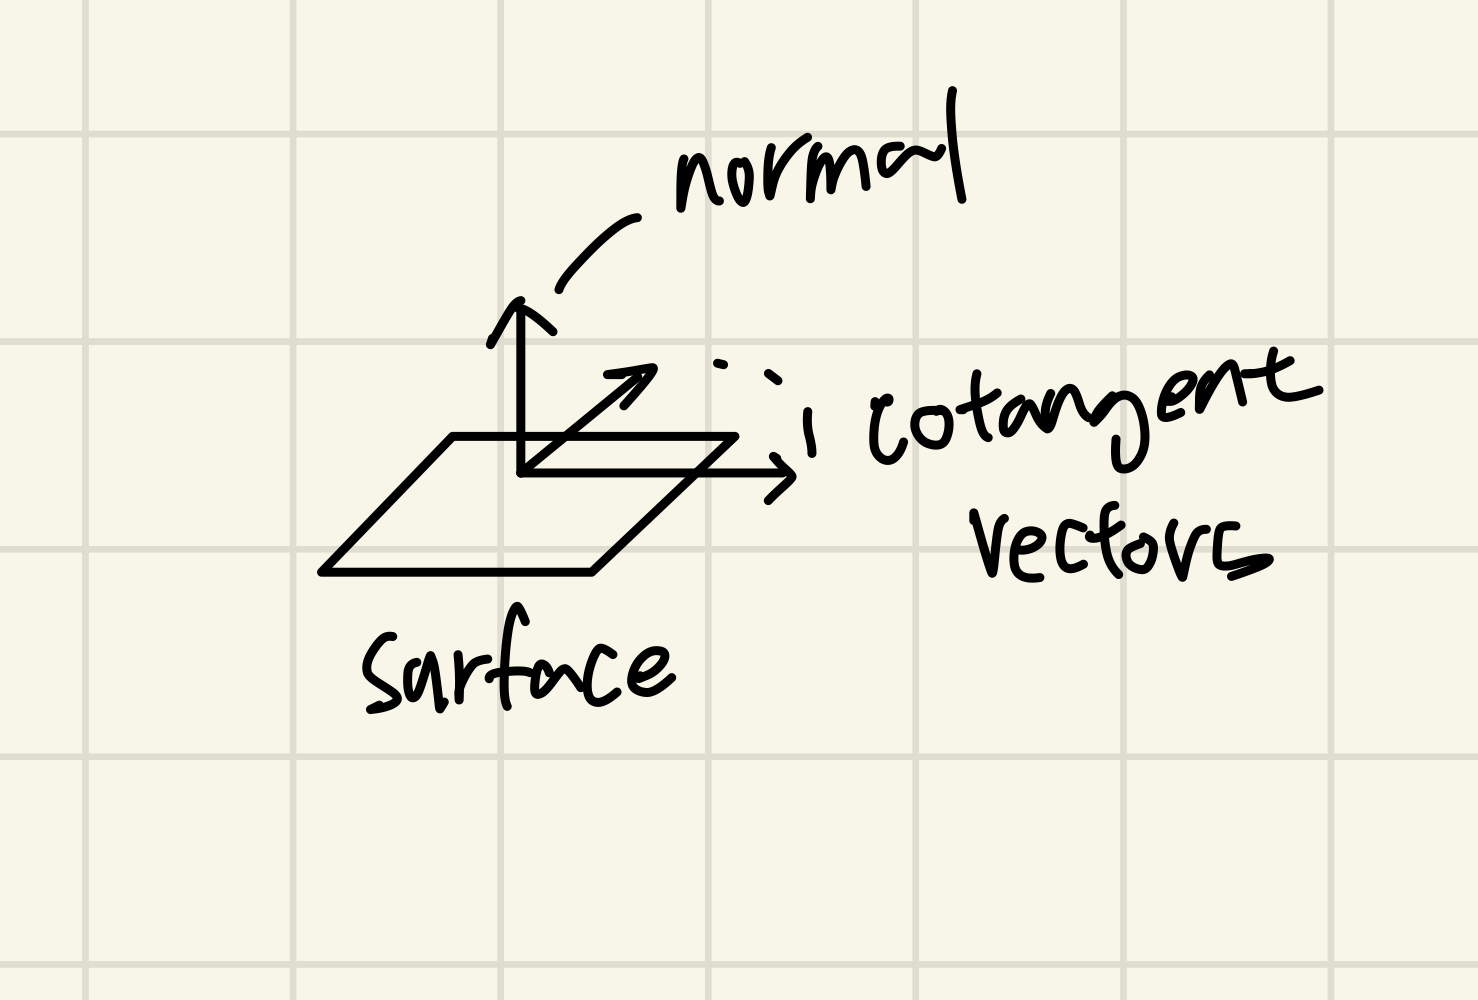 normal
cotangent
vectors
surface